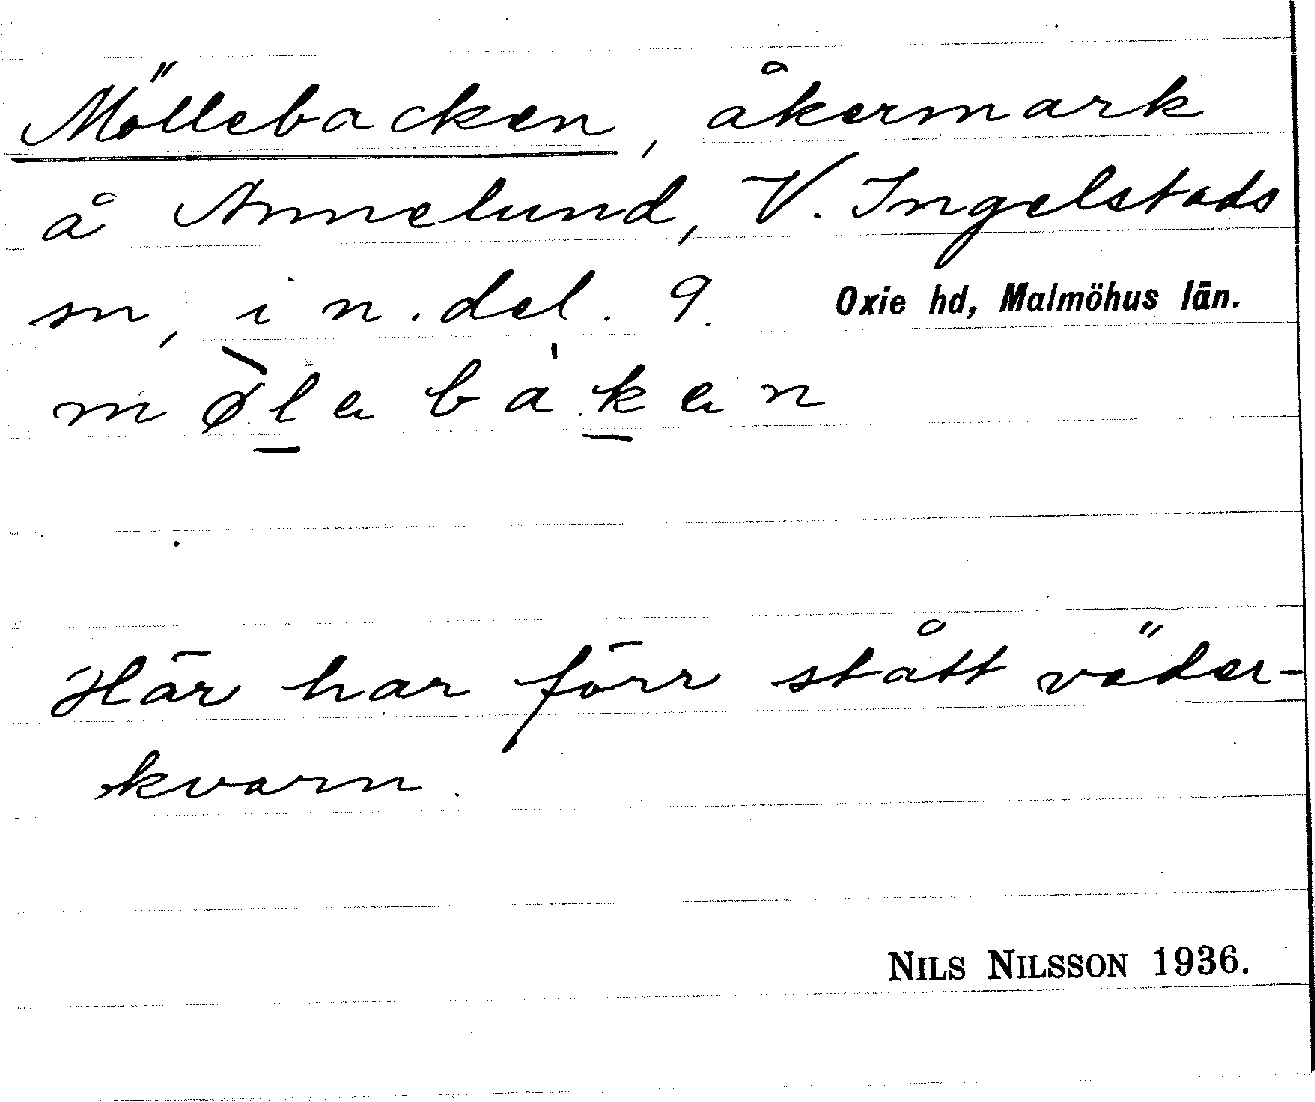 Möllebacken, åkermark
å Annelund, V. Ingelstads
sn, i n. del. 9. Oxie hd, Malmöhus län.
mø̀l̠ebàk̠en
Här har förr stått väder-
kvarn.
NILS NILSSON 1936.